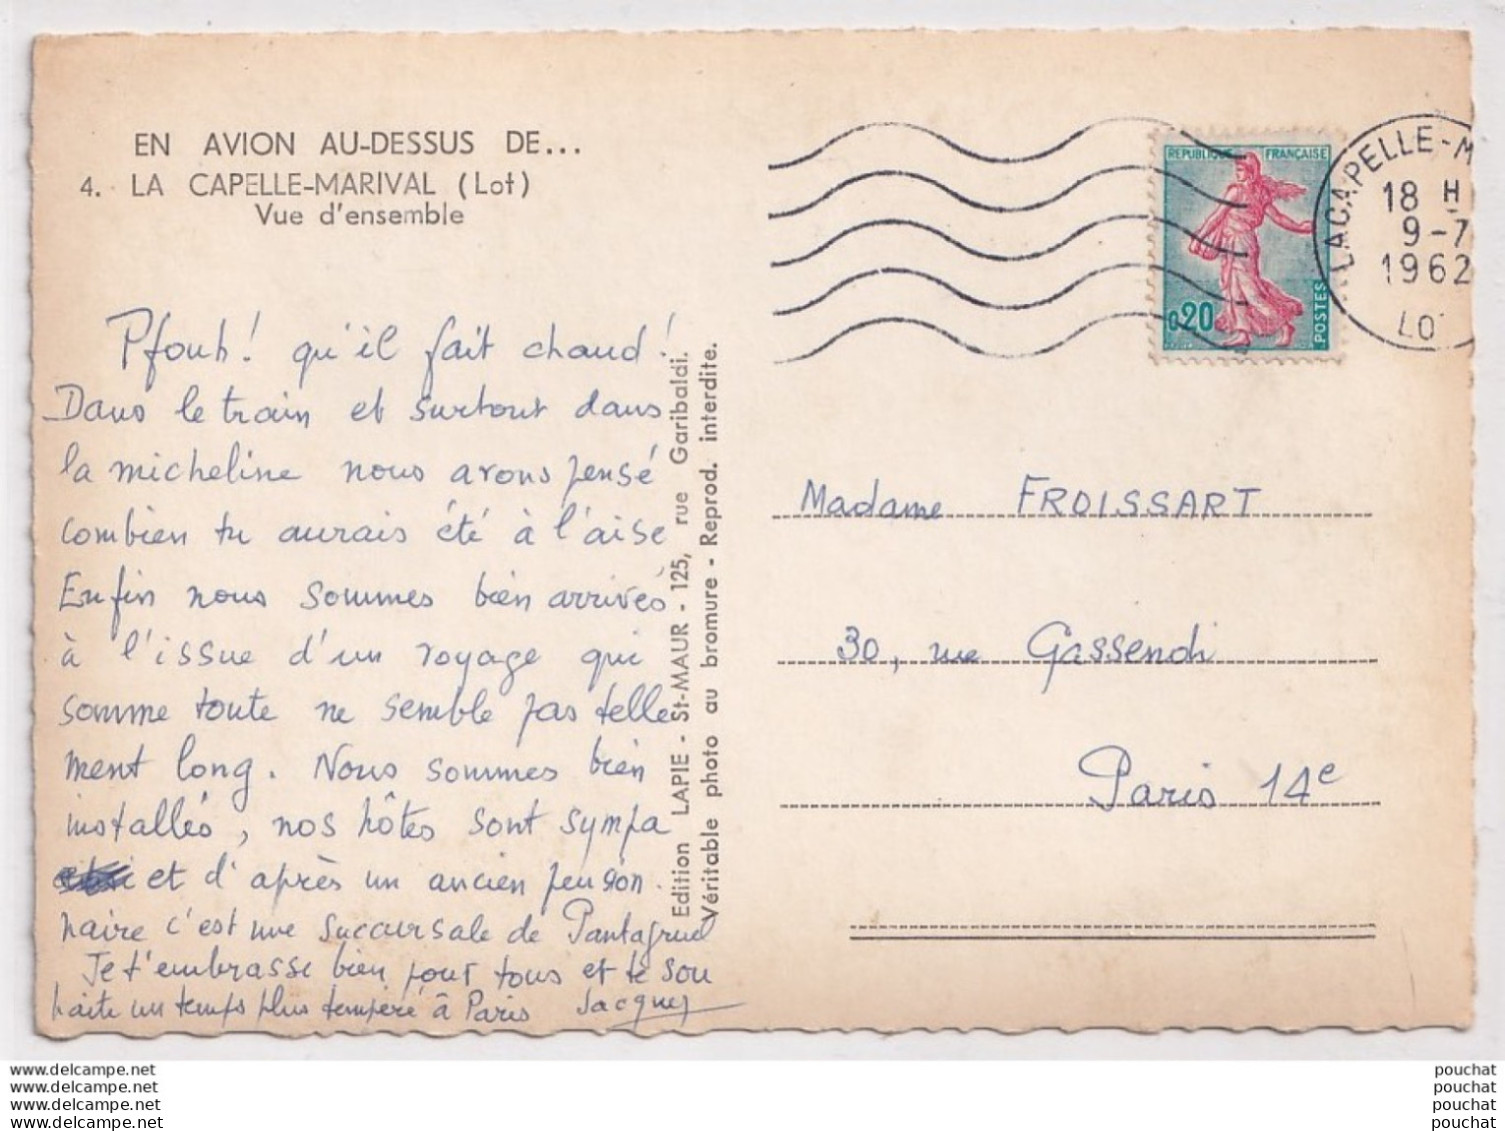 EN AVION AU-DESSUS DE...
4. LA CAPELLE-MARIVAL (Lot)
Vue d'ensemble
Pfouh! qu'il fait chaud!
Dans le train et surtout dans
la micheline nous avons pensé
combien tu aurais été à l'aise
Enfin nous sommes bien arrivés
à l'issue d'un voyage qui
somme toute ne semble pas telle
ment long. Nous sommes bien
installés, nos hôtes sont sympa
et d'après un ancien pension
naire c'est une succursale de Pantagruel
Je t'embrasse bien pour tous et te sou
haite un temps plus tempéré à Paris Jacques
Edition LAPIE - St-MAUR - 125, rue Garibaldi.
Véritable photo au bromure - Reprod. interdite.
REPUBLIQUE FRANÇAISE
0,20
POSTES
LACAPELLE-M
18 H
9-7
1962
LOT
Madame FROISSART
30, rue Gassendi
Paris 14e
www.delcampe.net
www.delcampe.net
www.delcampe.net
www.delcampe.net
pouchat
pouchat
pouchat
pouchat